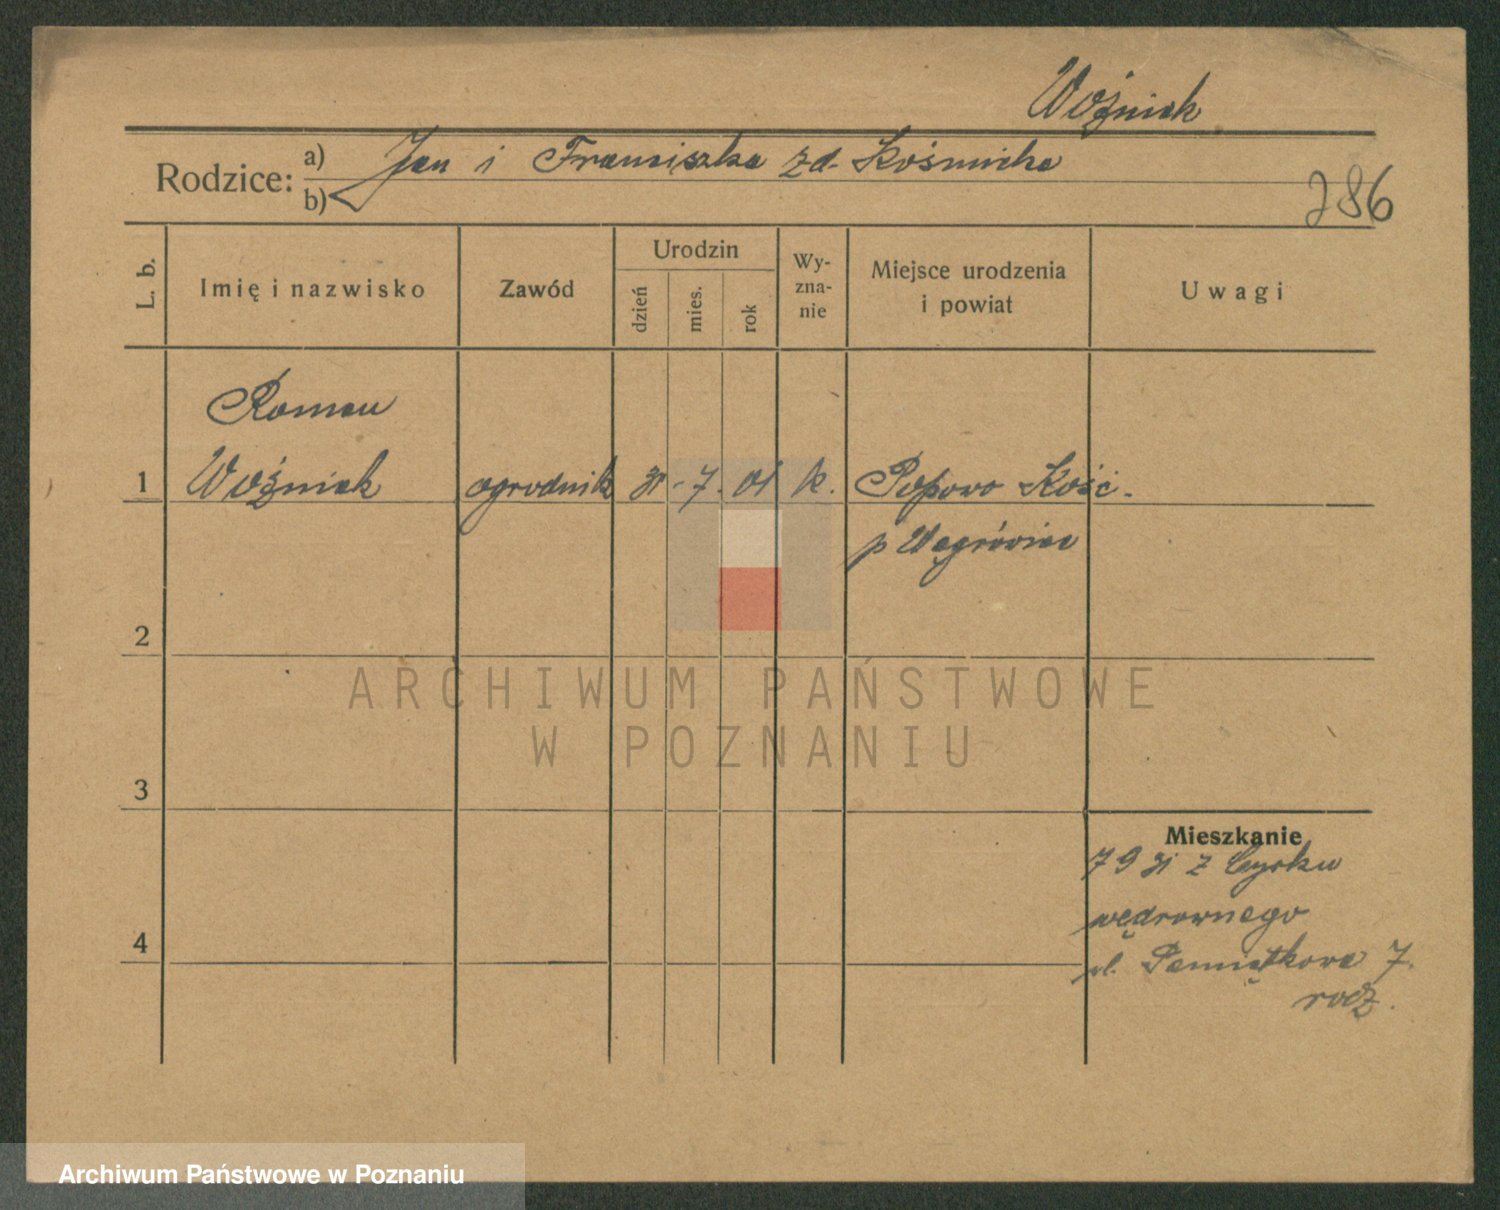 Woźniak
Rodzice: a) Jan i Franciszka zd. Kośmicka
b)
286
L. b.
Imię i nazwisko
Zawód
Urodzin
dzień
mies.
rok
Wy-
zna-
nie
Miejsce urodzenia
i powiat
Uwagi
Roman
1 Woźniak ogrodnik 31 - 7. 01 k. Popowo Kość.
p Wągrówiec
2
ARCHIWUM PAŃSTWOWE
W POZNANIU
3
Mieszkanie
7 9 31 z Cyrku
wędrownego
4
ul. Pamiątkowa 7.
rodz.
Archiwum Państwowe w Poznaniu